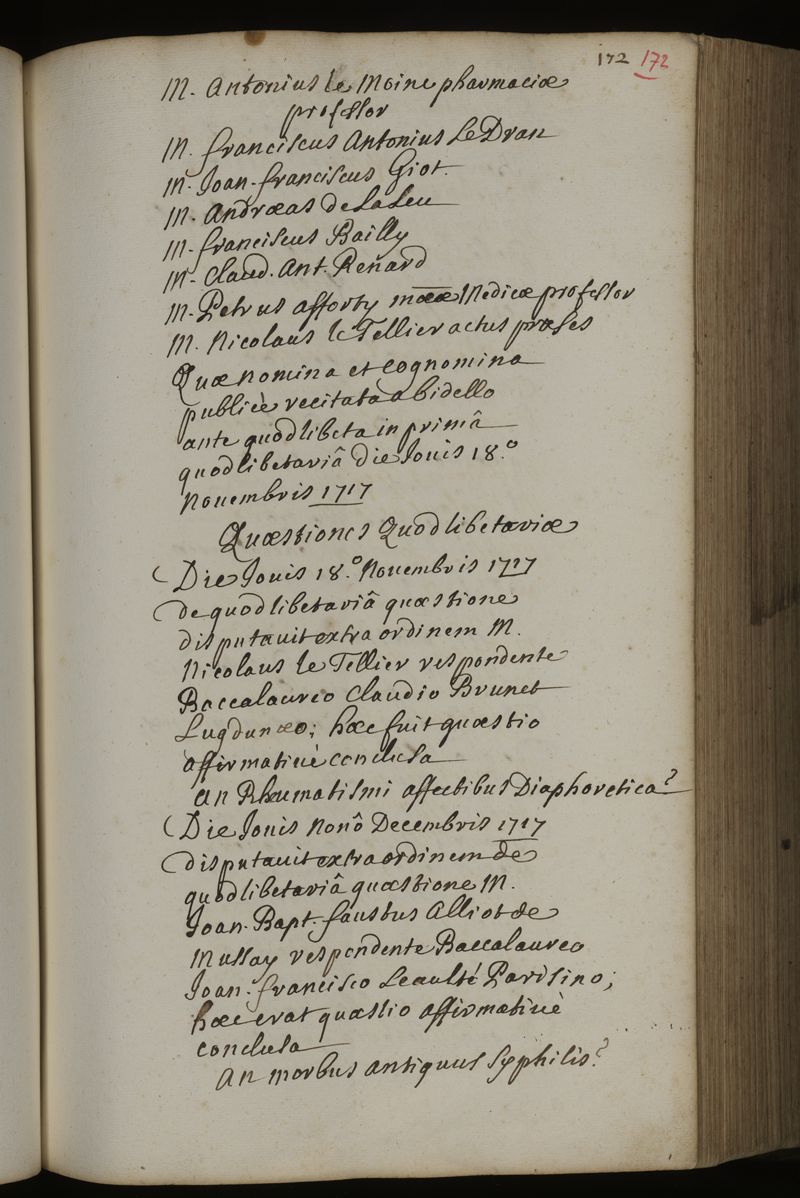 172 172
M. Antonius le Moine pharmaciæ
professor
M. franciscus Antonius Le Dran
M. Joan. franciscus Giot.
M. Andræas De La Leu
M. franciscus Bailly
M. Claud. Ant. Renard
M. Petrus afforty Medicæ professor
M. Nicolaus le Tellier actus præses
Quæ nomina et cognomina
publicè recitata a bidello
ante quodlibeta in primâ
quodlibetariâ die Jouis 18.º
Nouembris 1717
Quæstiones Quodlibetariæ
Die Jouis 18.º Nouembris 1717
de quodlibetariâ quæstione
disputauit extra ordinem M.
Nicolaus le Tellier respondente
Baccalaureo Claudio Brunet
Lugdunæo; hæc fuit quæstio
affirmatiuè conclusa
An Rheumatismi affectibus Diaphoretica?
Die Jouis Nonô Decembris 1717
disputauit extra ordinem de
quodlibetariâ quæstione M.
Joan. Bapt. faustus Alliot de
Mussay respondente Baccalaureo
Joan. francisco Leaulté Parisino;
hæc erat quæstio affirmatiuè
conclusa
An morbus antiquus syphilis?